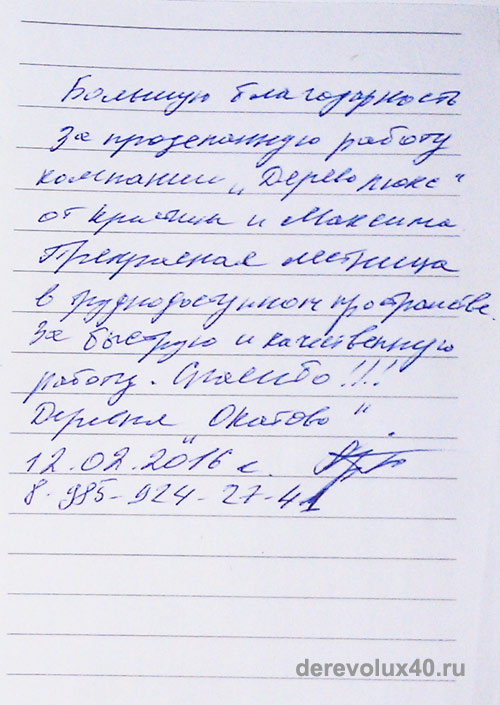 Большую благодарность
за проделанную работу
компании „Дерево люкс"
от Кристины и Максима
Прекрасная лестница
в труднодоступном пространстве.
За быструю и качественную
работу. Спасибо!!!
Деревня „Окатово".
12.02.2016 г.
8-985-924-27-41
derevolux40.ru